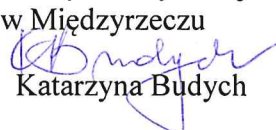 w Międzyrzeczu
Katarzyna Budych